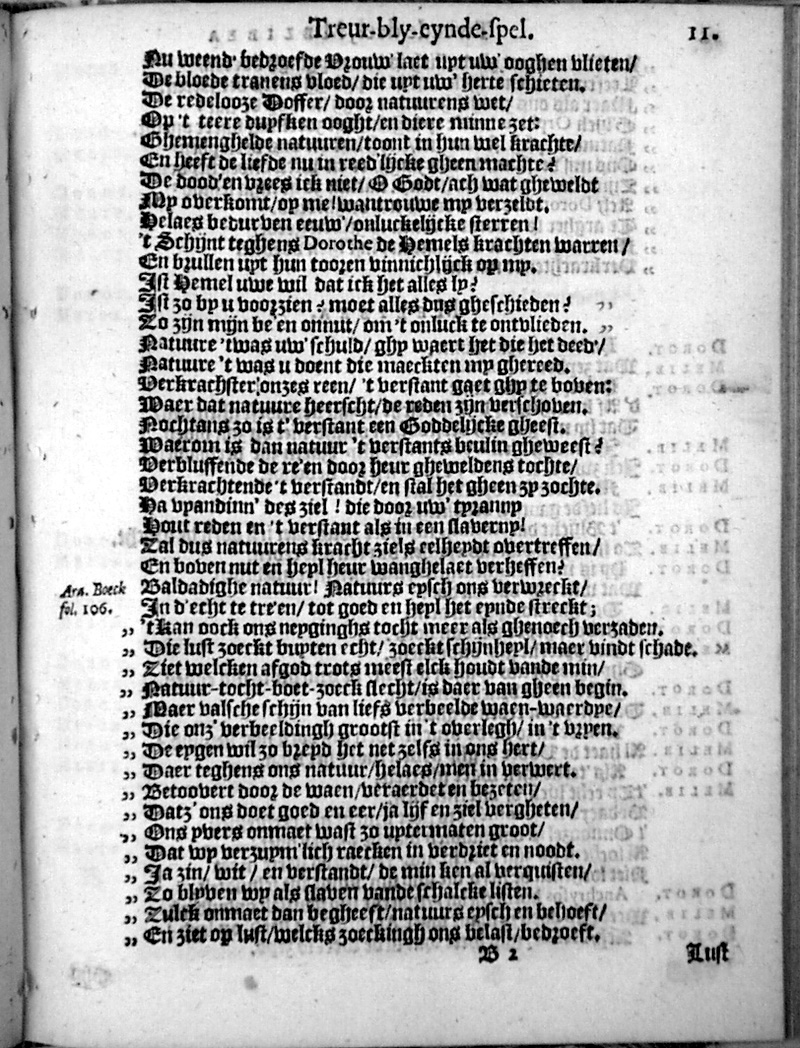 Treur-bly-eynde-spel. 11.
Nu weend' bedroefde Vrouw' laet uyt uw' ooghen vlieten/
De bloede tranens vloed/ die uyt uw' herte schieten.
De redelooze Doffer/ door natuurens wet/
Op 't teere duyfken ooght/ en diere minne zet:
Ghemenghelde natuuren/ toont in hun wel krachte/
En heeft de liefde nu in reed'lijcke gheen machte?
De dood' en vrees ick niet/ O Godt/ ach wat gheweldt
My overkomt/ op me! wantrouwe my verzeldt.
Helaes bedurven eeuw'/ onluckelijcke sterren!
't Schijnt teghens Dorothe de Hemels krachten warren/
En brullen uyt hun tooren vinnichlijck op my.
Ist Hemel uwe wil dat ick het alles ly?
Ist zo by u voorzien? moet alles dus gheschieden? ,,
Zo zijn mijn be'en onnut/ om 't onluck te ontvlieden. ,,
Natuure 'twas uw' schuld/ ghy waert het die het deed'/
Natuure 't was u doent die maeckten my ghereed.
Verkrachster onzes reen/ 't verstant gaet ghy te boven:
Waer dat natuure heerscht/ de reden zijn verschoven.
Nochtans zo is t' verstant een Goddelijcke gheest.
Waerom is dan natuur 't verstants beulin gheweest?
Verbluffende de re'en door heur gheweldens tochte/
Verkrachtende 't verstandt/ en stal het gheen zy zochte.
Ha vyandinn' des ziel! die door uw' tyranny
Hout reden en 't verstant als in een slaverny!
Zal dus natuurens kracht ziels eelheydt overtreffen/
En boven nut en heyl heur wanghelaet verheffen?
Baldadighe natuur! Natuurs eysch ons verwreckt/
Ara. Boeck
fol. 106.
In d'echt te tre'en/ tot goed en heyl het eynde streckt;
,, 't Kan oock ons neyginghs tocht meer als ghenoech verzaden.
,, Die lust zoeckt buyten echt/ zoeckt schijnheyl/ maer vindt schade.
,, Ziet welcken afgod trots meest elck houdt vande min/
,, Natuur-tocht-boet-zoeck slecht/ is daer van gheen begin.
,, Maer valsche schijn van liefs verbeelde waen-waerdye/
,, Die onz' verbeeldingh grootst in 't overlegh/ in 't vryen.
,, De eygen wil zo breyd het net zelfs in ons hert/
,, Daer teghens ons natuur/ helaes/ men in verwert.
,, Betoovert door de waen/ veraerdet en bezeten/
,, Datz' ons doet goed en eer/ ja lijf en ziel vergheten/
,, Ons yvers onmaet wast zo uytermaten groot/
,, Dat wy verzuym'lich raecken in verdriet en noodt.
,, Ja zin/ wit/ en verstandt/ de min ken al verquisten/
,, Zo blyven wy als slaven vande schalcke listen.
,, Zulck onmaet dan begheeft/ natuurs eysch en behoeft/
,, En ziet op lust/ welcks zoeckingh ons belast/ bedroeft.
B 2 Lust